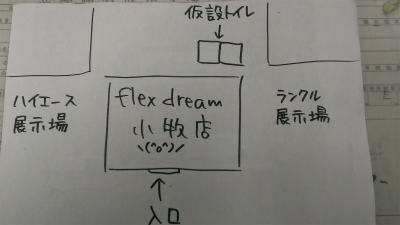 仮設トイレ
↓
ハイエース
展示場
flex dream
小牧店
\(^o^)/
ランクル
展示場
↑
入口